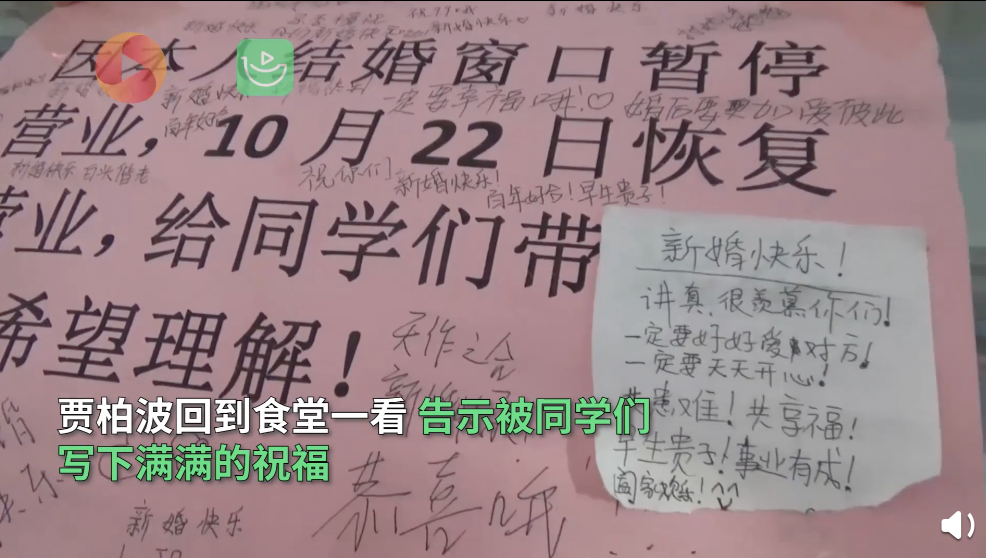 新婚快乐
新婚快乐
因本人结婚窗口暂停
新婚快乐
一定要幸福哦!♡
婚后要更加爱彼此
百年好合
营业,10月22日恢复
新婚快乐 白头偕老
祝你们
新婚快乐!
百年好合!早生贵子!
营业,给同学们带
希望理解!
天作之合
恭喜哦
新婚快乐
新婚快乐!
讲真,很羡慕你们!
一定要好好爱对方!
一定要天天开心!
共患难!共享福!
早生贵子!事业有成!
阖家欢乐!
贾柏波回到食堂一看 告示被同学们
写下满满的祝福